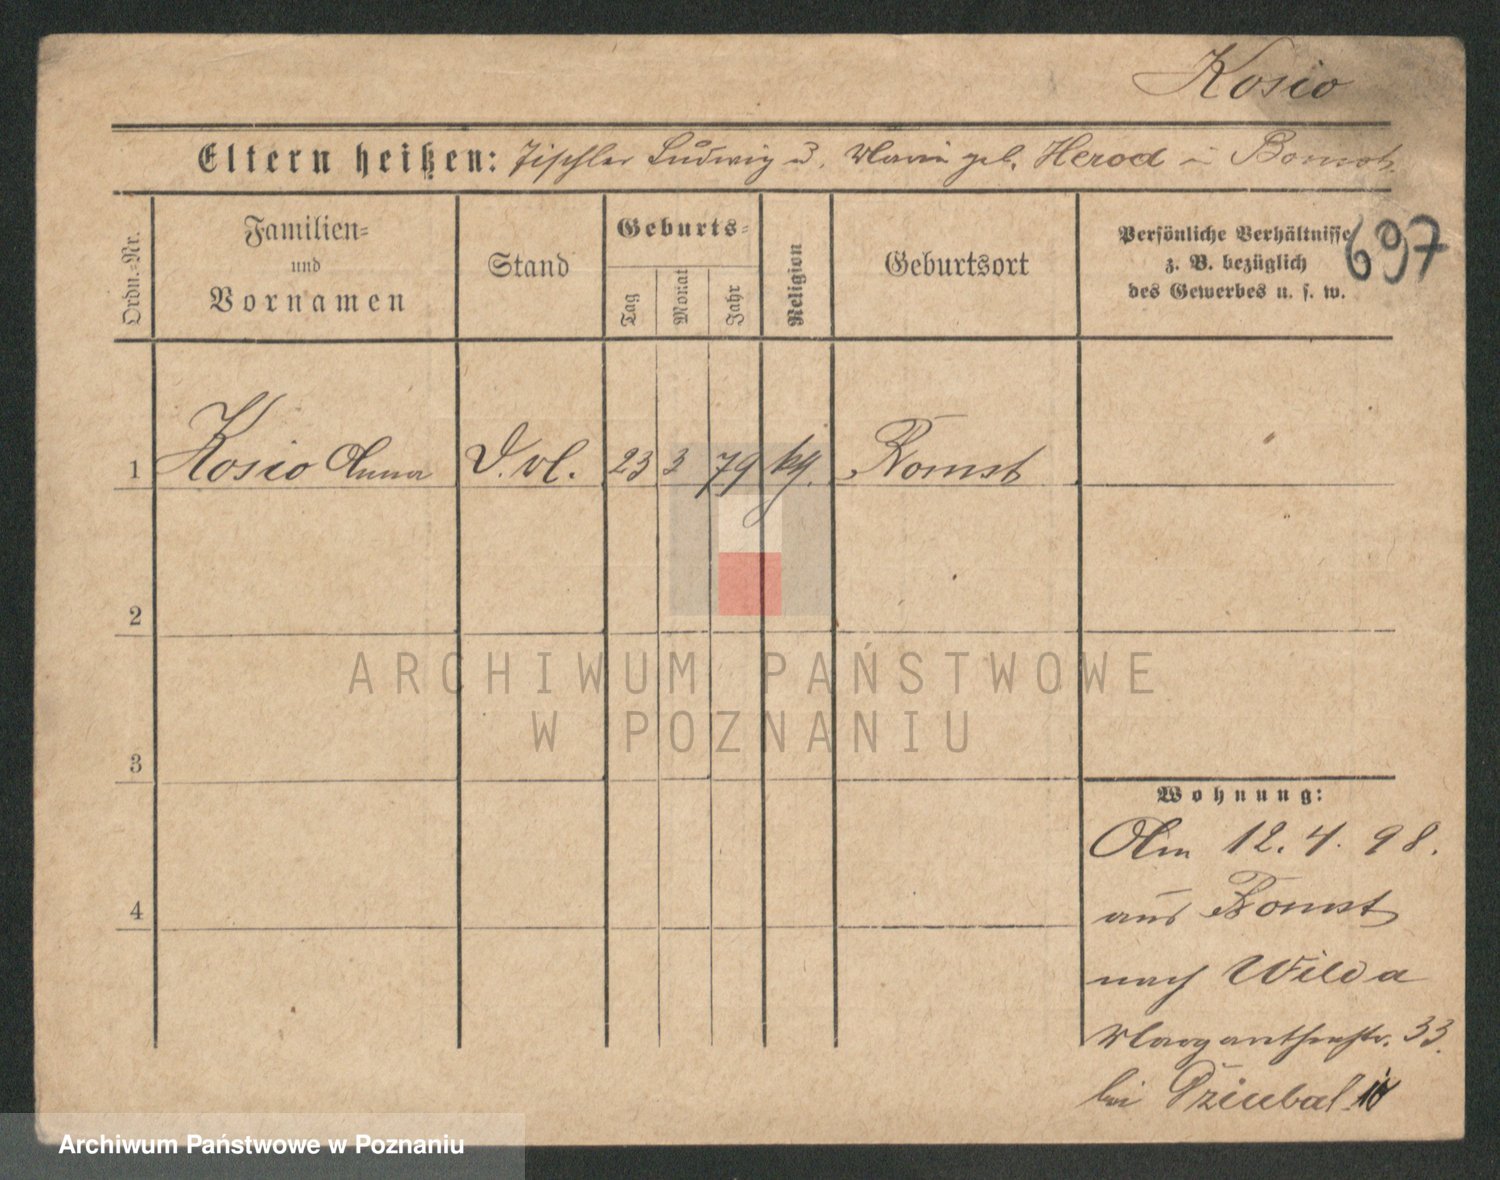 Kosio
Eltern heißen: Tischler Ludwig u. Marie geb. Herod in Bomst.
Ordn.-Nr.
Familien-
und
Vornamen
Stand
Geburts-
Tag
Monat
Jahr
Religion
Geburtsort
Persönliche Verhältnisse
z. B. bezüglich
des Gewerbes u. s. w.
697
1 Kosio Anna 23 3 79 kth. Bomst
2
3
4
Wohnung:
Am 12. 4. 98.
aus Bomst
nach Wilda
Margarethenstr. 33.
bei
ARCHIWUM PAŃSTWOWE
W POZNANIU
Archiwum Państwowe w Poznaniu